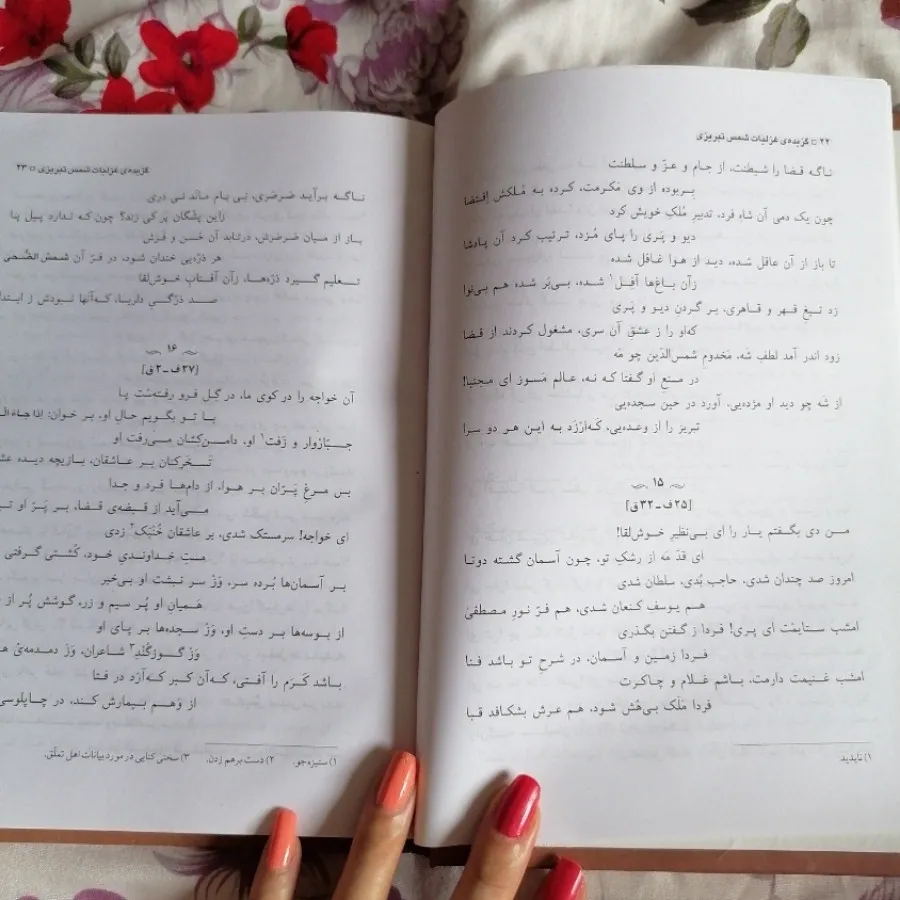 ۲۲ □ گزیده‌ی غزلیات شمس تبریزی
ناگه قضا را شیطنت، از جام و عزّ و سلطنت
بربوده از وی مَکرمت، کرده به مُلکش اِقتضا
چون یک دمی آن شاهِ فرد، تدبیر مُلکِ خویش کرد
دیو و پَری را پای مُزد، ترتیب کرد آن پادشا
تا باز از آن عاقل شده، دید از هوا غافل شده
زآن باغ‌ها آفِل۱ شده، بی‌بَر شده هم بی‌نوا
زد تیغِ قهر و قاهری، بر گردنِ دیو و پَری
که‌او را ز عشقِ آن سری، مشغول کردند از قضا
زود اندر آمد لطفِ شَه، مَخدومِ شمس‌الدّین چو مَه
در منعِ او گفتا که نه، عالم مَسوز ای مجتبا!
از شَه چو دید او مژده‌یی، آورد در حین سجده‌یی
تبریز را از وعده‌یی، کَه‌ارْزَد به این هر دو سرا
۱۵
[۲۵ف ـ ۳۲ق]
من دی بگفتم یار را ای بی‌نظیرِ خوش‌لقا!
ای قدّ مَه از رشکِ تو، چون آسمان گشته دوتا
امروز صد چندان شدی، حاجب بُدی، سلطان شدی
هم یوسف کنعان شدی، هم فرّ نورِ مصطفیٰ
امشب ستایمْت ای پری! فردا ز گفتن بگذری
فردا زمین و آسمان، در شرح تو باشد فنا
امشب غنیمت دارمت، باشم غلام و چاکرت
فردا مَلَک بی‌هُش شود، هم عرش بشکافد قبا
۱) ناپدید
گزیده‌ی غزلیات شمس تبریزی □ ۲۳
ناگه برآید صَرصَری، نی بام ماند نی دری
زاین پشّگان پر کی زند؟ چون که ندارد پیل پا
باز از میانِ صَرصَرش، درتابد آن حُسن و فَرَش
هر ذرّه‌یی خندان شود، در فرّ آن شمسُ‌الضُّحی
تعلیم گیرد ذرّه‌ها، زآن آفتابِ خوش‌لقا
صد ذرّگی دلربا، که‌آنها نبودش ز ابتدا
۱۶
[۲۷ف ـ ۲ق]
آن خواجه را در کوی ما، در گِل فرو رفته‌ست پا
با تو بگویم حالِ او، بر خوان: اذا جاءَ
جبّاروار و زَفت۱ او، دامن‌کشان می‌رفت او
تَسخَرکنان بر عاشقان، بازیچه دیده
بس مرغِ پَرّان بر هوا، از دام‌ها فرد و جدا
می‌آید از قبضه‌ی قضا، بر پَرّ او
ای خواجه! سرمستک شدی، بر عاشقان خُنبَک۲ زدی
مستِ خداوندیِ خود، کُشتی گرفتی
بر آسمان‌ها بُرده سر، وَز سر نبشت او بی‌خبر
هَمیانِ او پُر سیم و زر، گوشش پُر از
از بوسه‌ها بر دستِ او، وَز سجده‌ها بر پای او
وَز گوزکُنْدِ۳ شاعران، وَز دمدمه‌ی
باشد کَرَم را آفتی، که‌آن کبر که‌آرَد در فتا
از وَهم بیمارش کنند، در چاپلوسی
۱) ستیزه‌جو.
۲) دست برهم زدن.
۳) سخنی کنایی در مورد بیانات اهل تملّق.